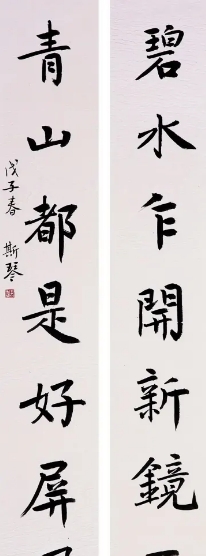 碧水乍開新鏡
青山都是好屏
戊子春 斯琴